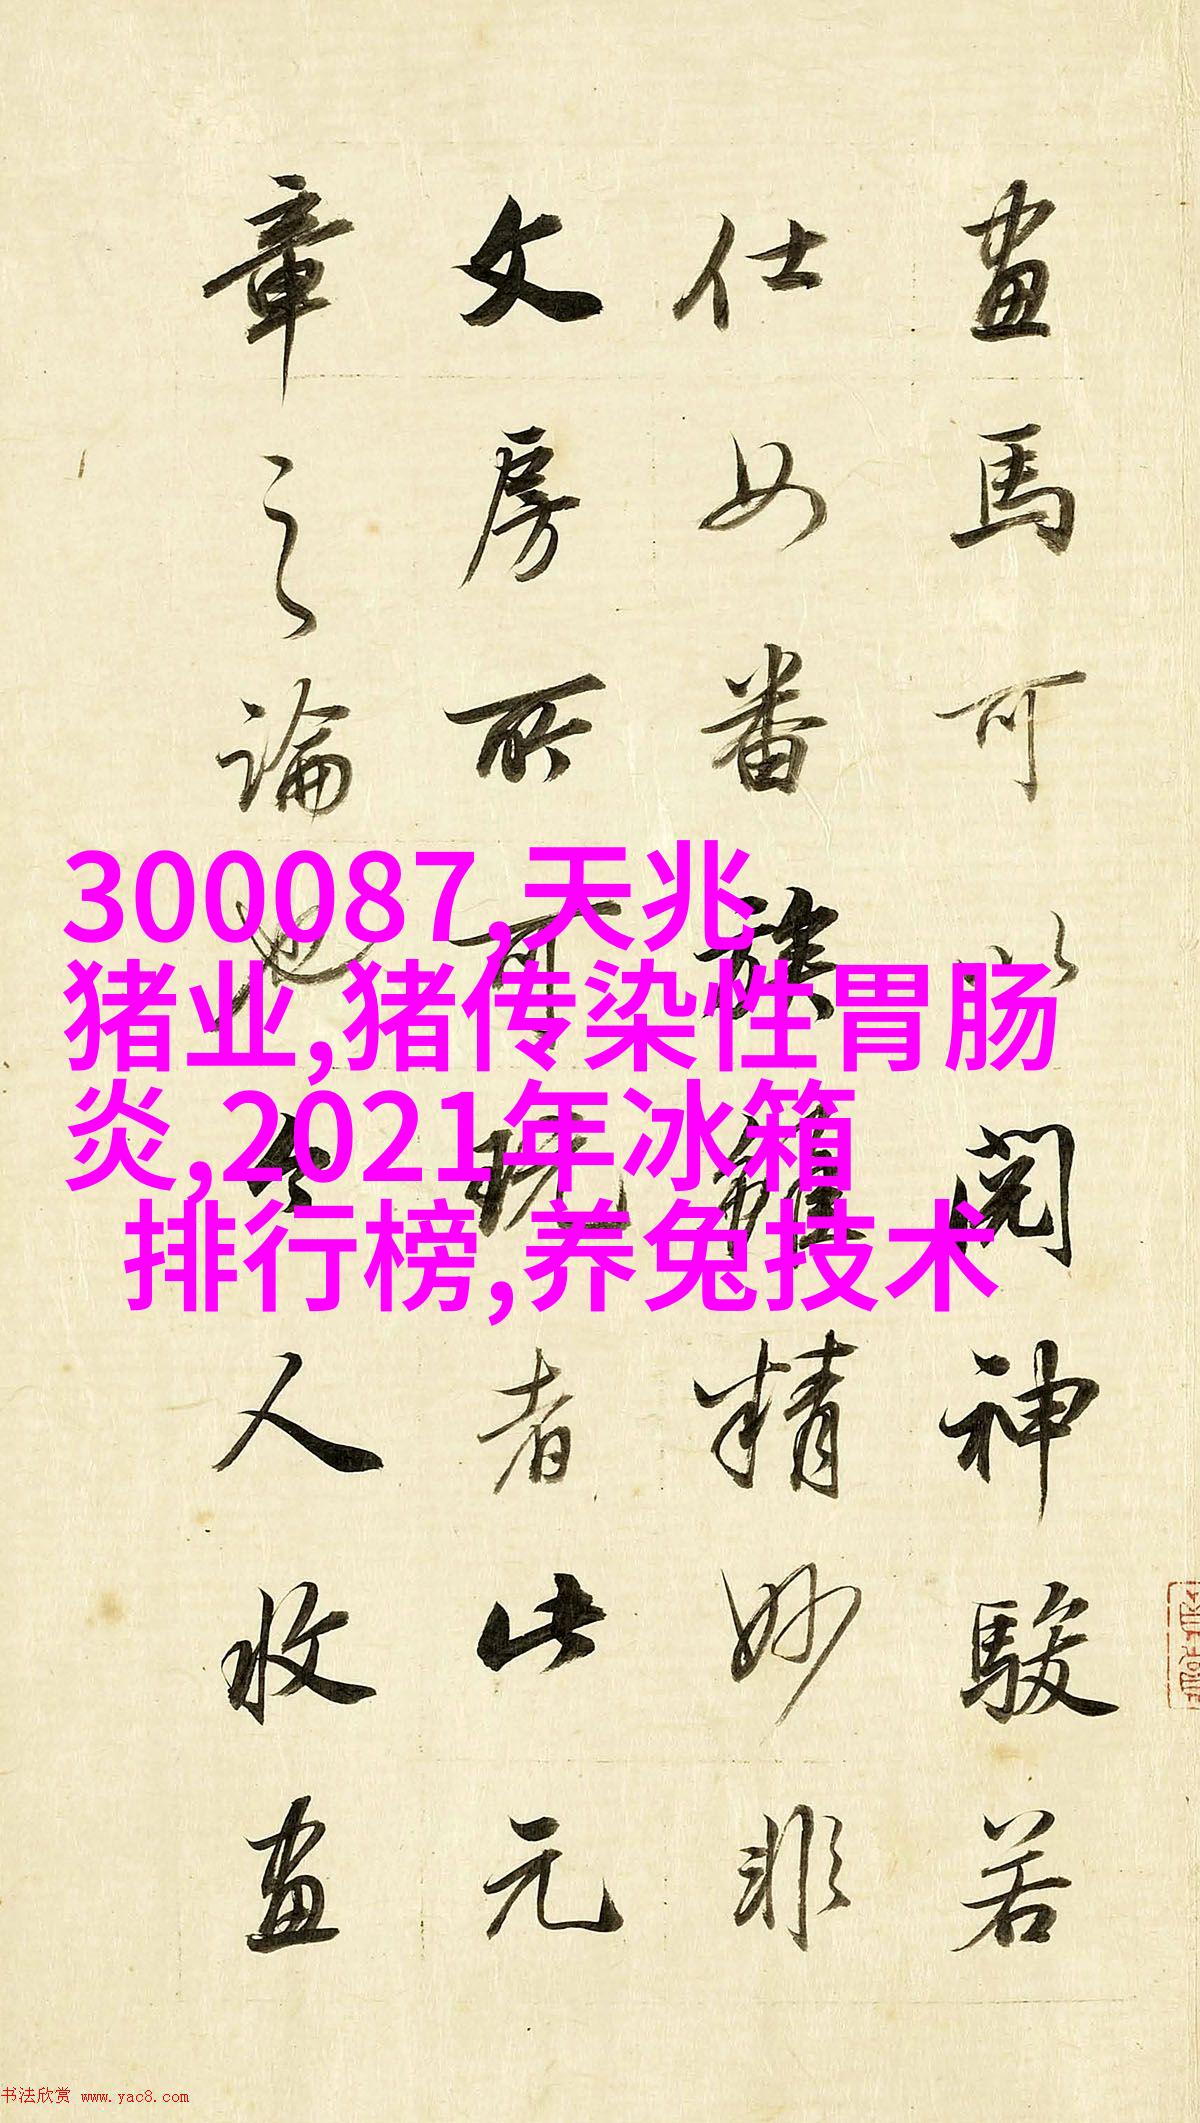 畫馬可以閱神駿若
仕女番族雖精妙非
文房所可玩者此元
章之論也今人收畫
300087,天兆
猪业,猪传染性胃肠
炎,2021年冰箱
排行榜,养兔技术
书法欣赏 www.yac8.com